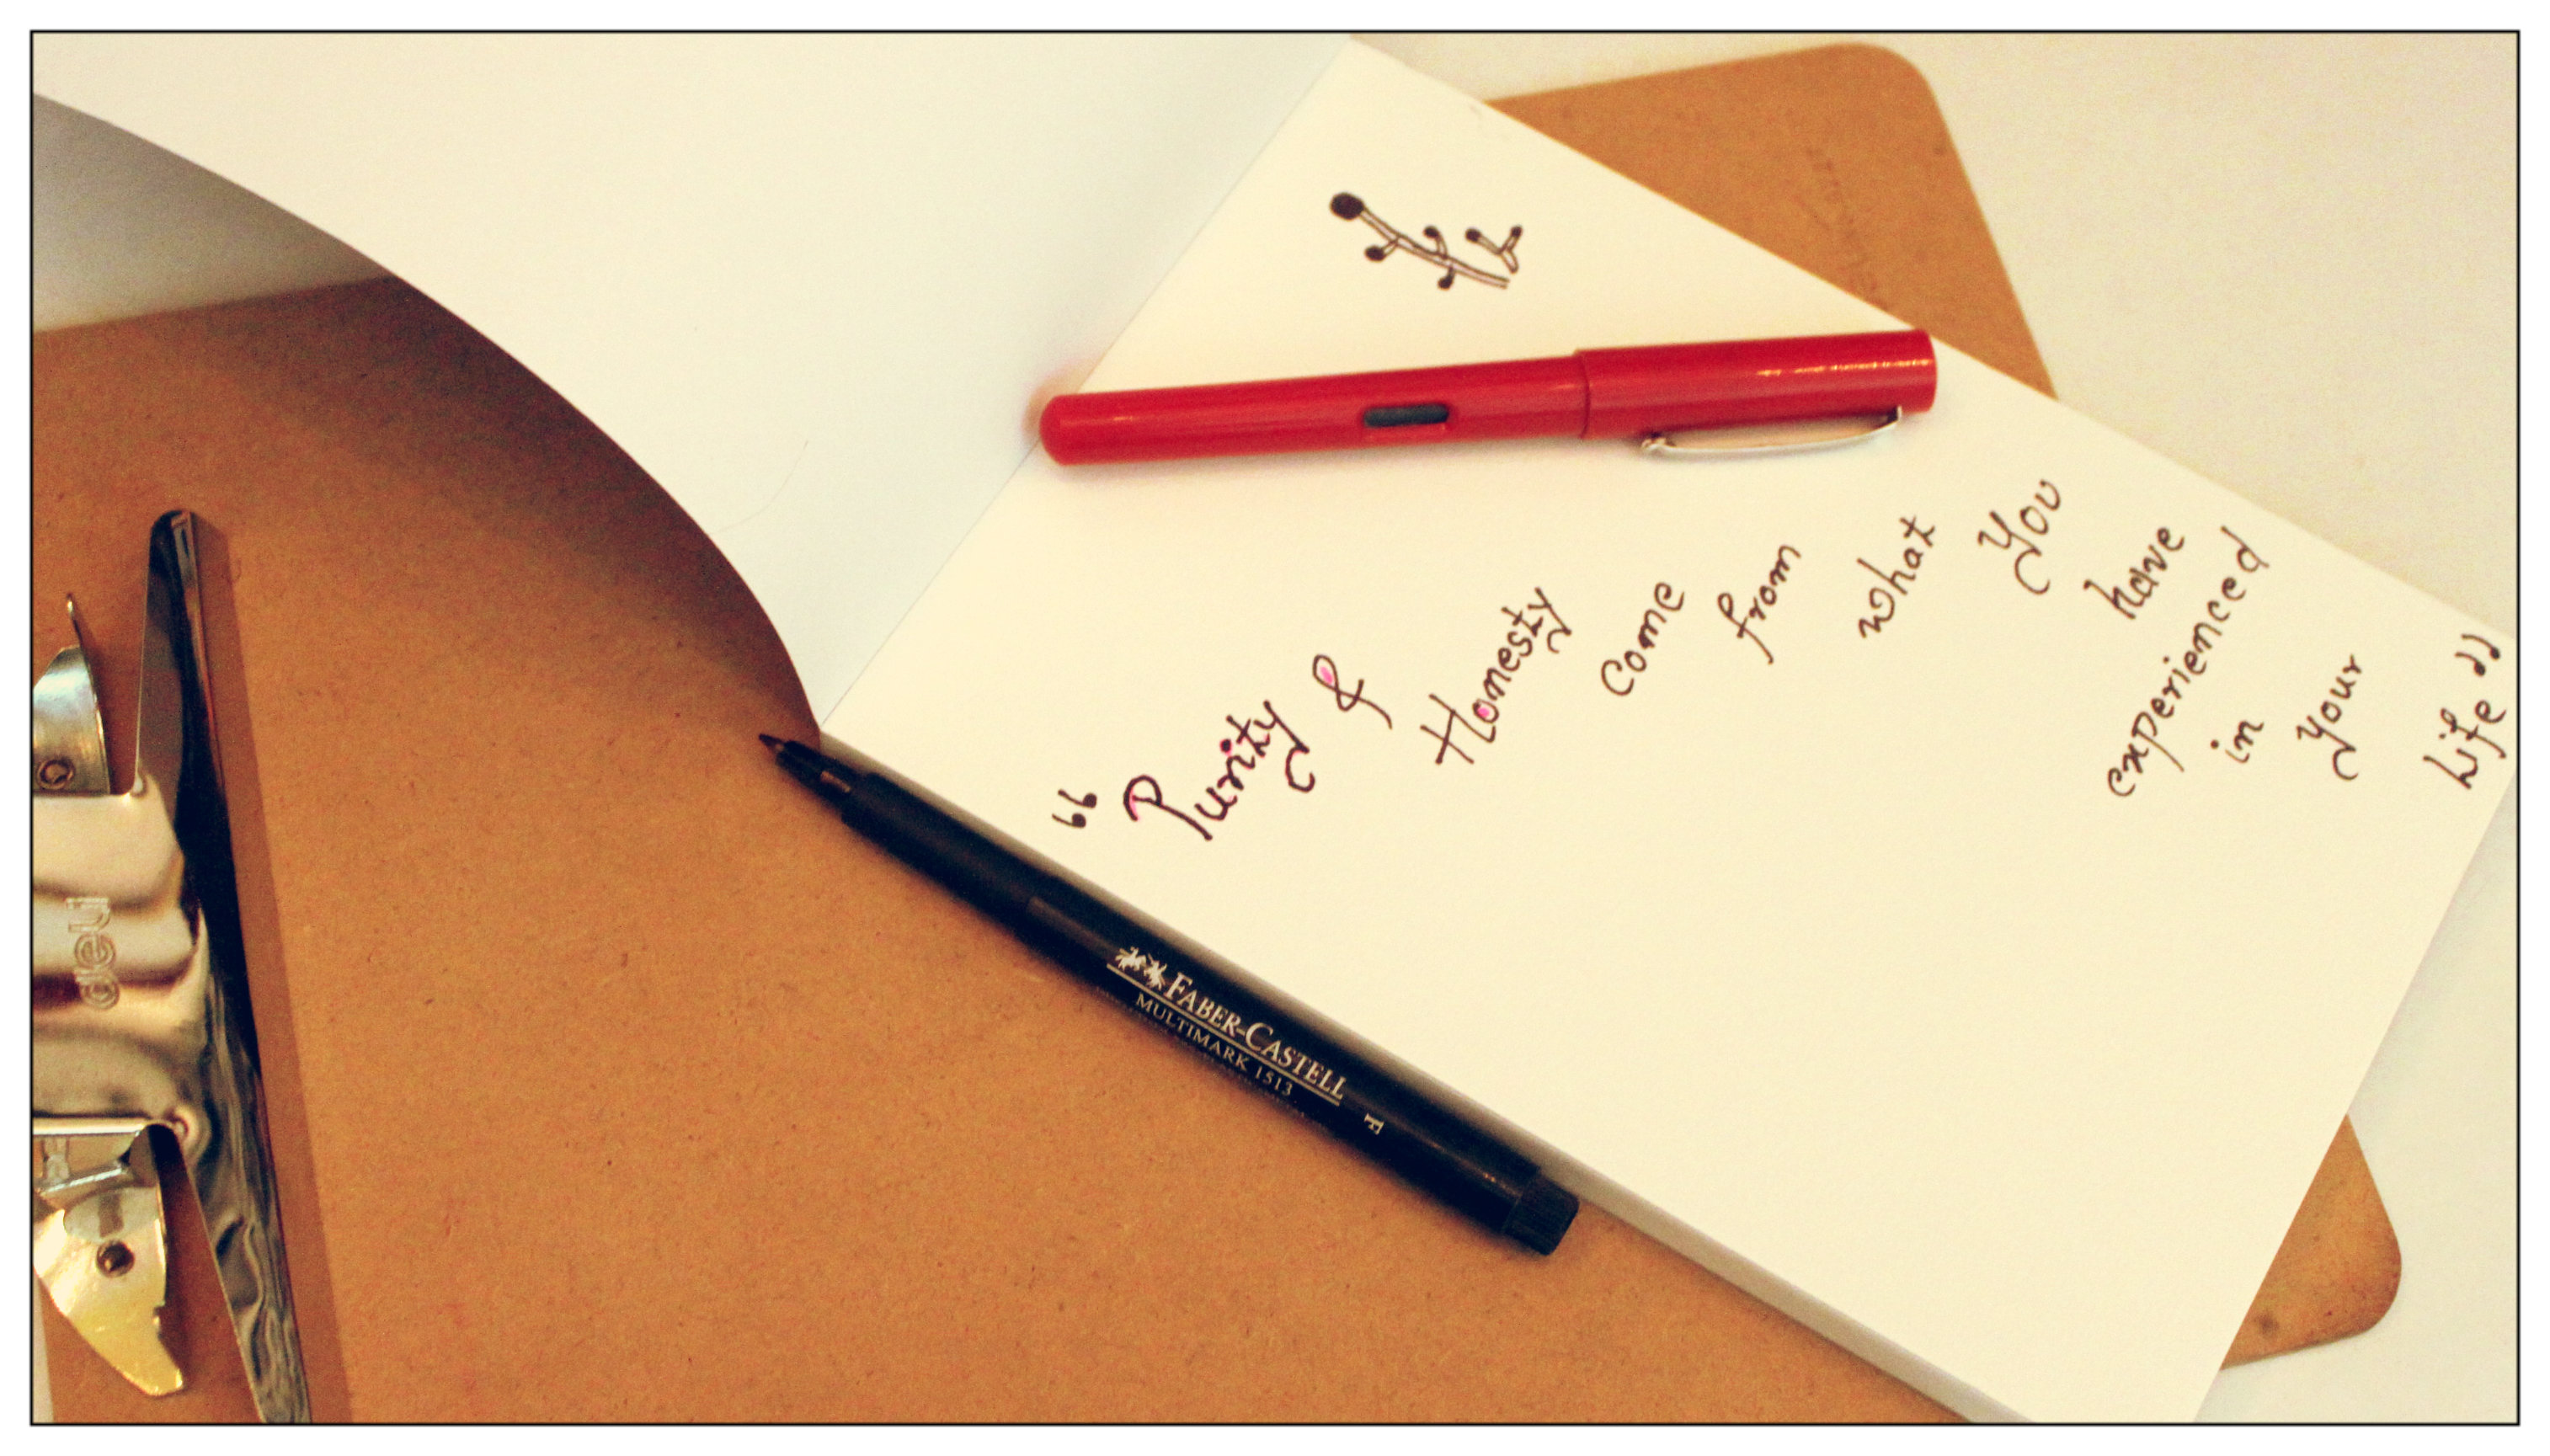 “ Purity & Homesty come from what You have
experienced in your Life ”
FABER-CASTELL
MULTIMARK 1513 F
deli